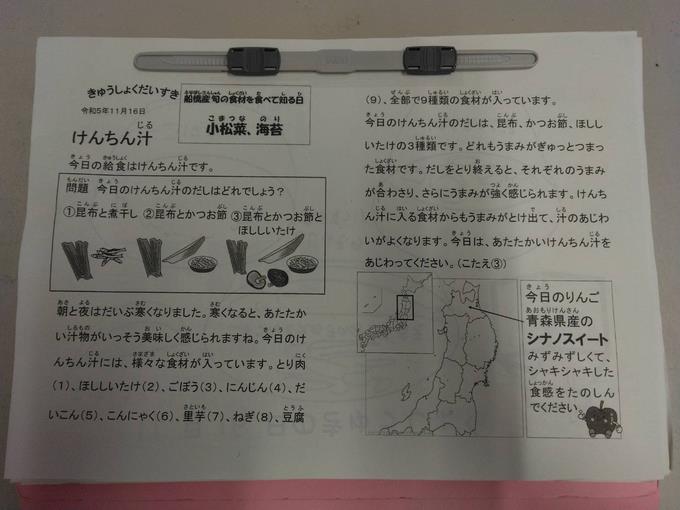 きゅうしょくだいすき
令和5年11月16日
船橋産旬の食材を食べて知る日
小松菜、海苔
けんちん汁
今日の給食はけんちん汁です。
問題 今日のけんちん汁のだしはどれでしょう?
①昆布と煮干し ②昆布とかつお節 ③昆布とかつお節と
ほししいたけ
朝と夜はだいぶ寒くなりました。寒くなると、あたたか
い汁物がいっそう美味しく感じられますね。今日のけ
んちん汁には、様々な食材が入っています。とり肉
(1)、ほししいたけ(2)、ごぼう(3)、にんじん(4)、だ
いこん(5)、こんにゃく(6)、里芋(7)、ねぎ(8)、豆腐
(9)、全部で9種類の食材が入っています。
今日のけんちん汁のだしは、昆布、かつお節、ほしし
いたけの3種類です。どれもうまみがぎゅっとつまっ
た食材です。だしをとり終えると、それぞれのうまみ
が合わさり、さらにうまみが強く感じられます。けんち
ん汁に入る食材からもうまみがとけ出て、汁のあじわ
いがよくなります。今日は、あたたかいけんちん汁を
あじわってください。(こたえ③)
今日のりんご
青森県産の
シナノスイート
みずみずしくて、
シャキシャキした
食感をたのしん
でください。